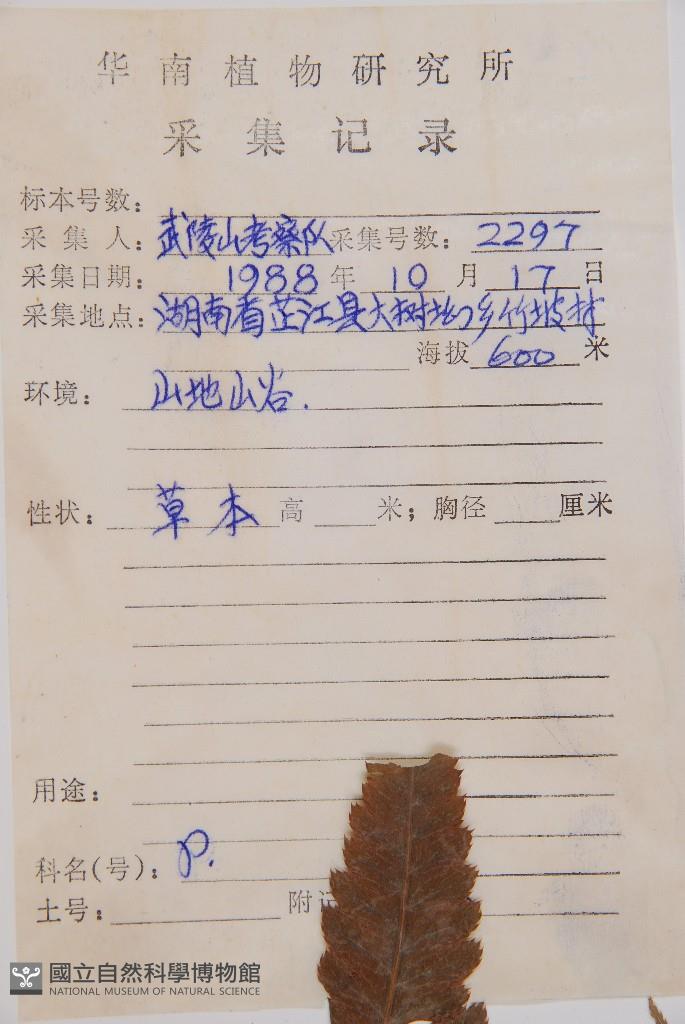 华南植物研究所
采集记录
标本号数：
采集人：武陵山考察队 采集号数：2297
采集日期：1988年10月17日
采集地点：湖南省芷江县大树坳乡竹坡村
海拔600米
环境：山地山谷.
性状：草本 高 米；胸径 厘米
用途：
科名(号)：P.
土号： 附记
國立自然科學博物館
NATIONAL MUSEUM OF NATURAL SCIENCE